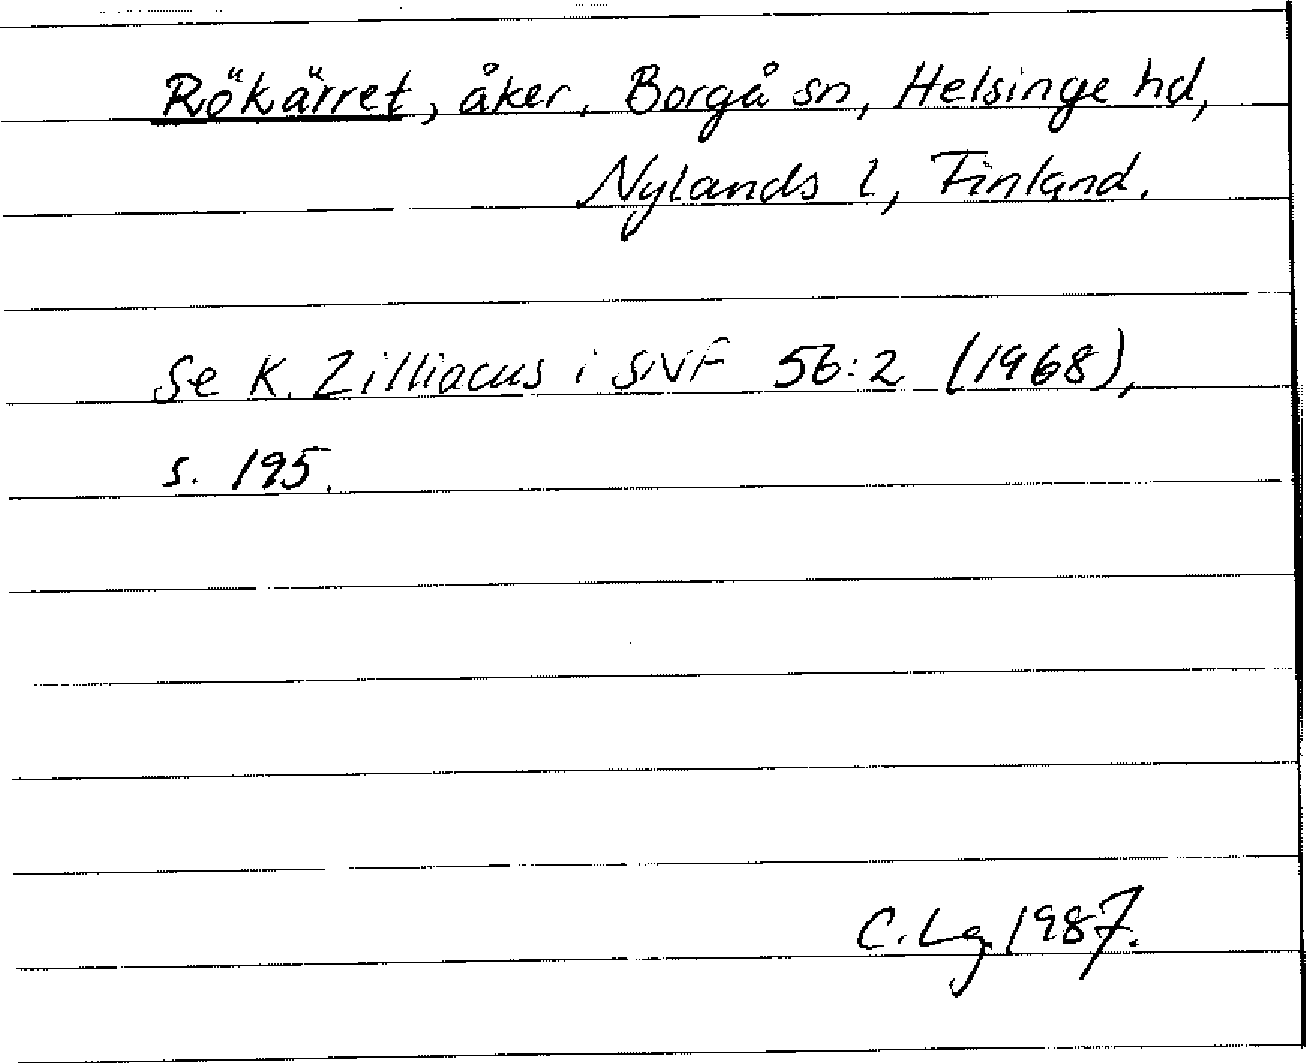 Rökärret, åker, Borgå sn, Helsinge hd,
Nylands l, Finland.
Se K. Zilliacus i SNF 56:2 (1968),
s. 195.
C. Lg. 1987.